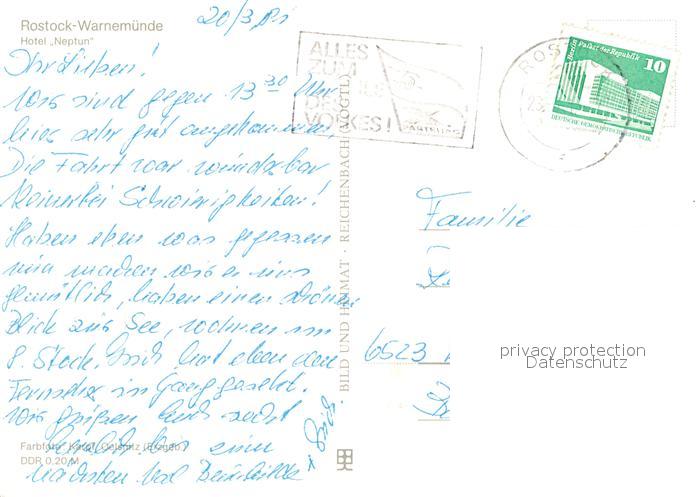 20/3.
Rostock-Warnemünde
Hotel „Neptun"
Ihr Lieben!
Wir sind gegen 13³⁰ Uhr
hier sehr gut angekommen,
Die Fahrt war wunderbar
Keinerlei Schwierigkeiten!
Haben eben was gegessen
nun machen wir es uns
gemütlich, haben einen schönen
Blick zur See, wohnen im
8. Stock. hat eben den
Fernseher in Gang gesetzt.
Wir grüßen Euch recht
herzlich bis zum
nächsten Mal
Farbfoto: Oelsnitz (Erzgeb.)
DDR 0,20 M
BILD UND HEIMAT · REICHENBACH (VOGTL)
ALLES
ZUM
DES
VOLKES!
ROST
Berlin Palast der Republik
10
DEUTSCHE DEMOKRATISCHE REPUBLIK
Familie
6523
privacy protection
Datenschutz